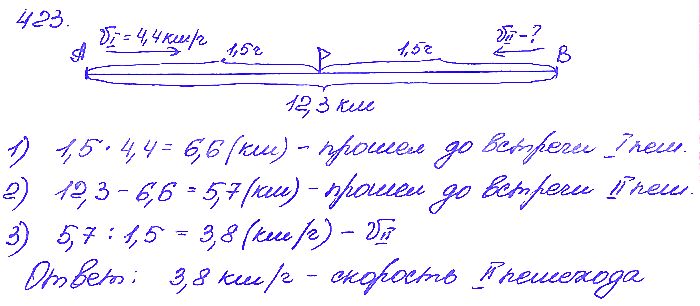 423.
V_I = 4,4 км/г 1,5г 1,5г V_II - ?
A B
12,3 км
1) 1,5 · 4,4 = 6,6 (км) - прошел до встречи I пеш.
2) 12,3 - 6,6 = 5,7 (км) - прошел до встречи II пеш.
3) 5,7 : 1,5 = 3,8 (км/г) - V_II
Ответ: 3,8 км/г - скорость II пешехода